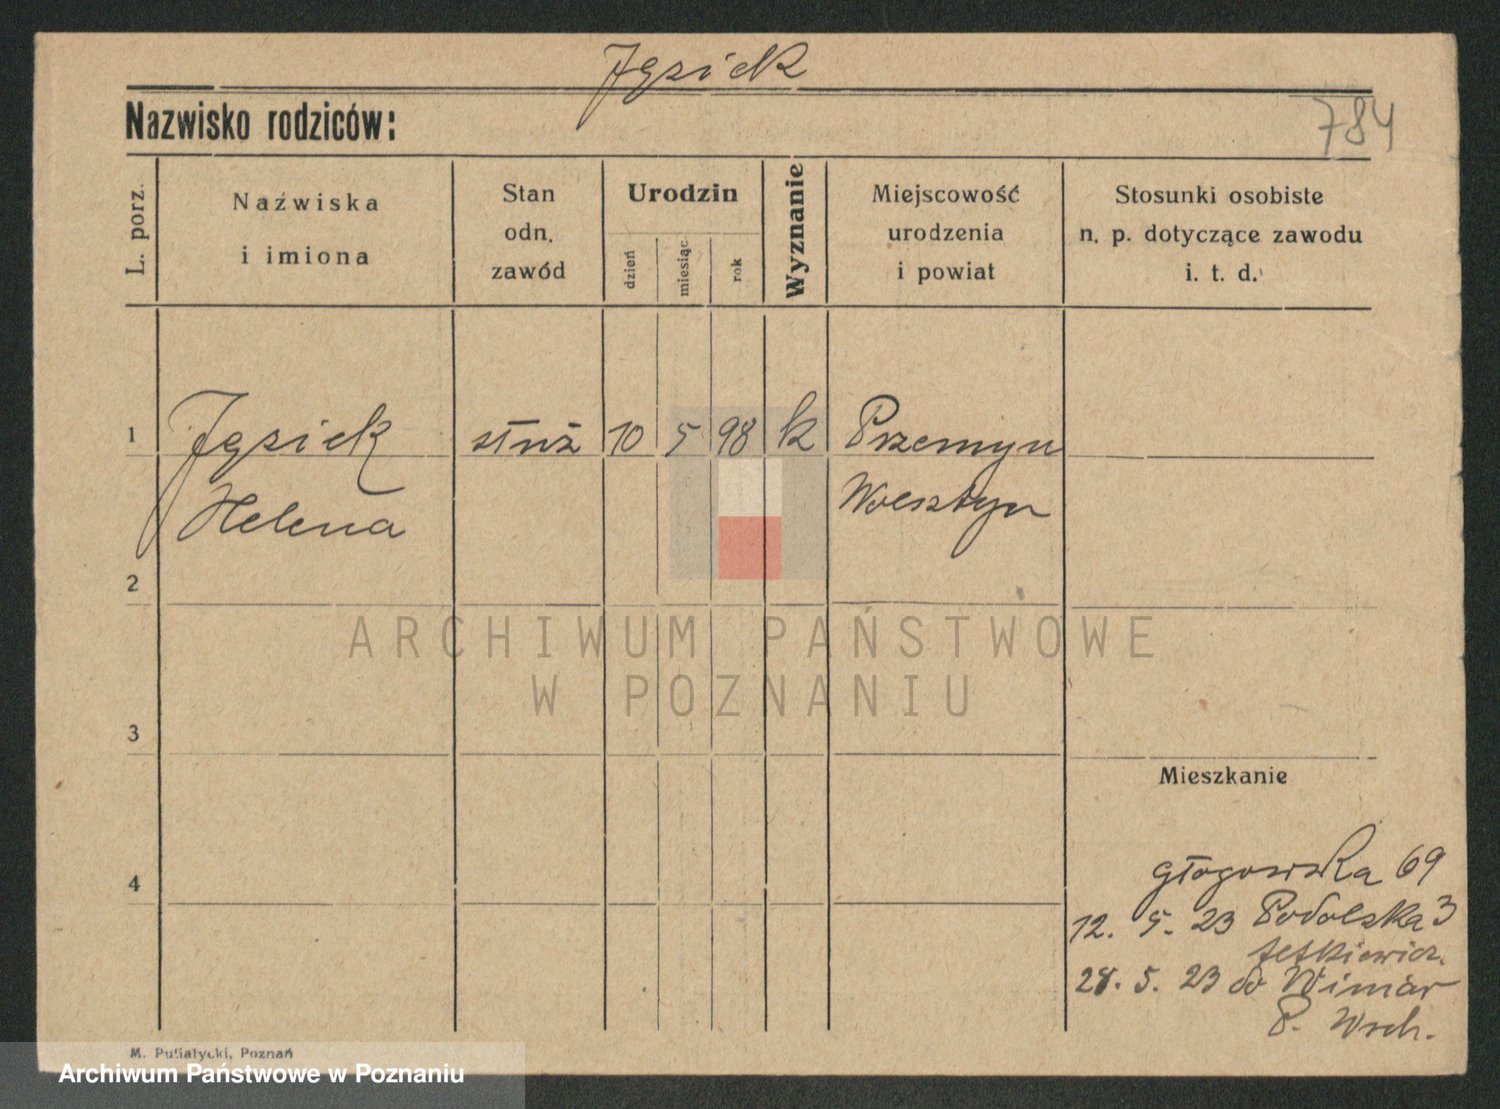 Jęsiek
Nazwisko rodziców:
784
L. porz.
Nazwiska
i imiona
Stan
odn.
zawód
Urodzin
dzień
miesiąc
rok
Wyznanie
Miejscowość
urodzenia
i powiat
Stosunki osobiste
n. p. dotyczące zawodu
i. t. d.
1
Jęsiek
Helena
służ
10
5
98
k
Przemyn
Wolsztyn
2
3
4
ARCHIWUM PAŃSTWOWE
W POZNANIU
Mieszkanie
Głogowska 69
12. 5. 23 Podolska 3
28. 5. 23 do Winiar
P. Wsch.
M. Putiatycki, Poznań
Archiwum Państwowe w Poznaniu